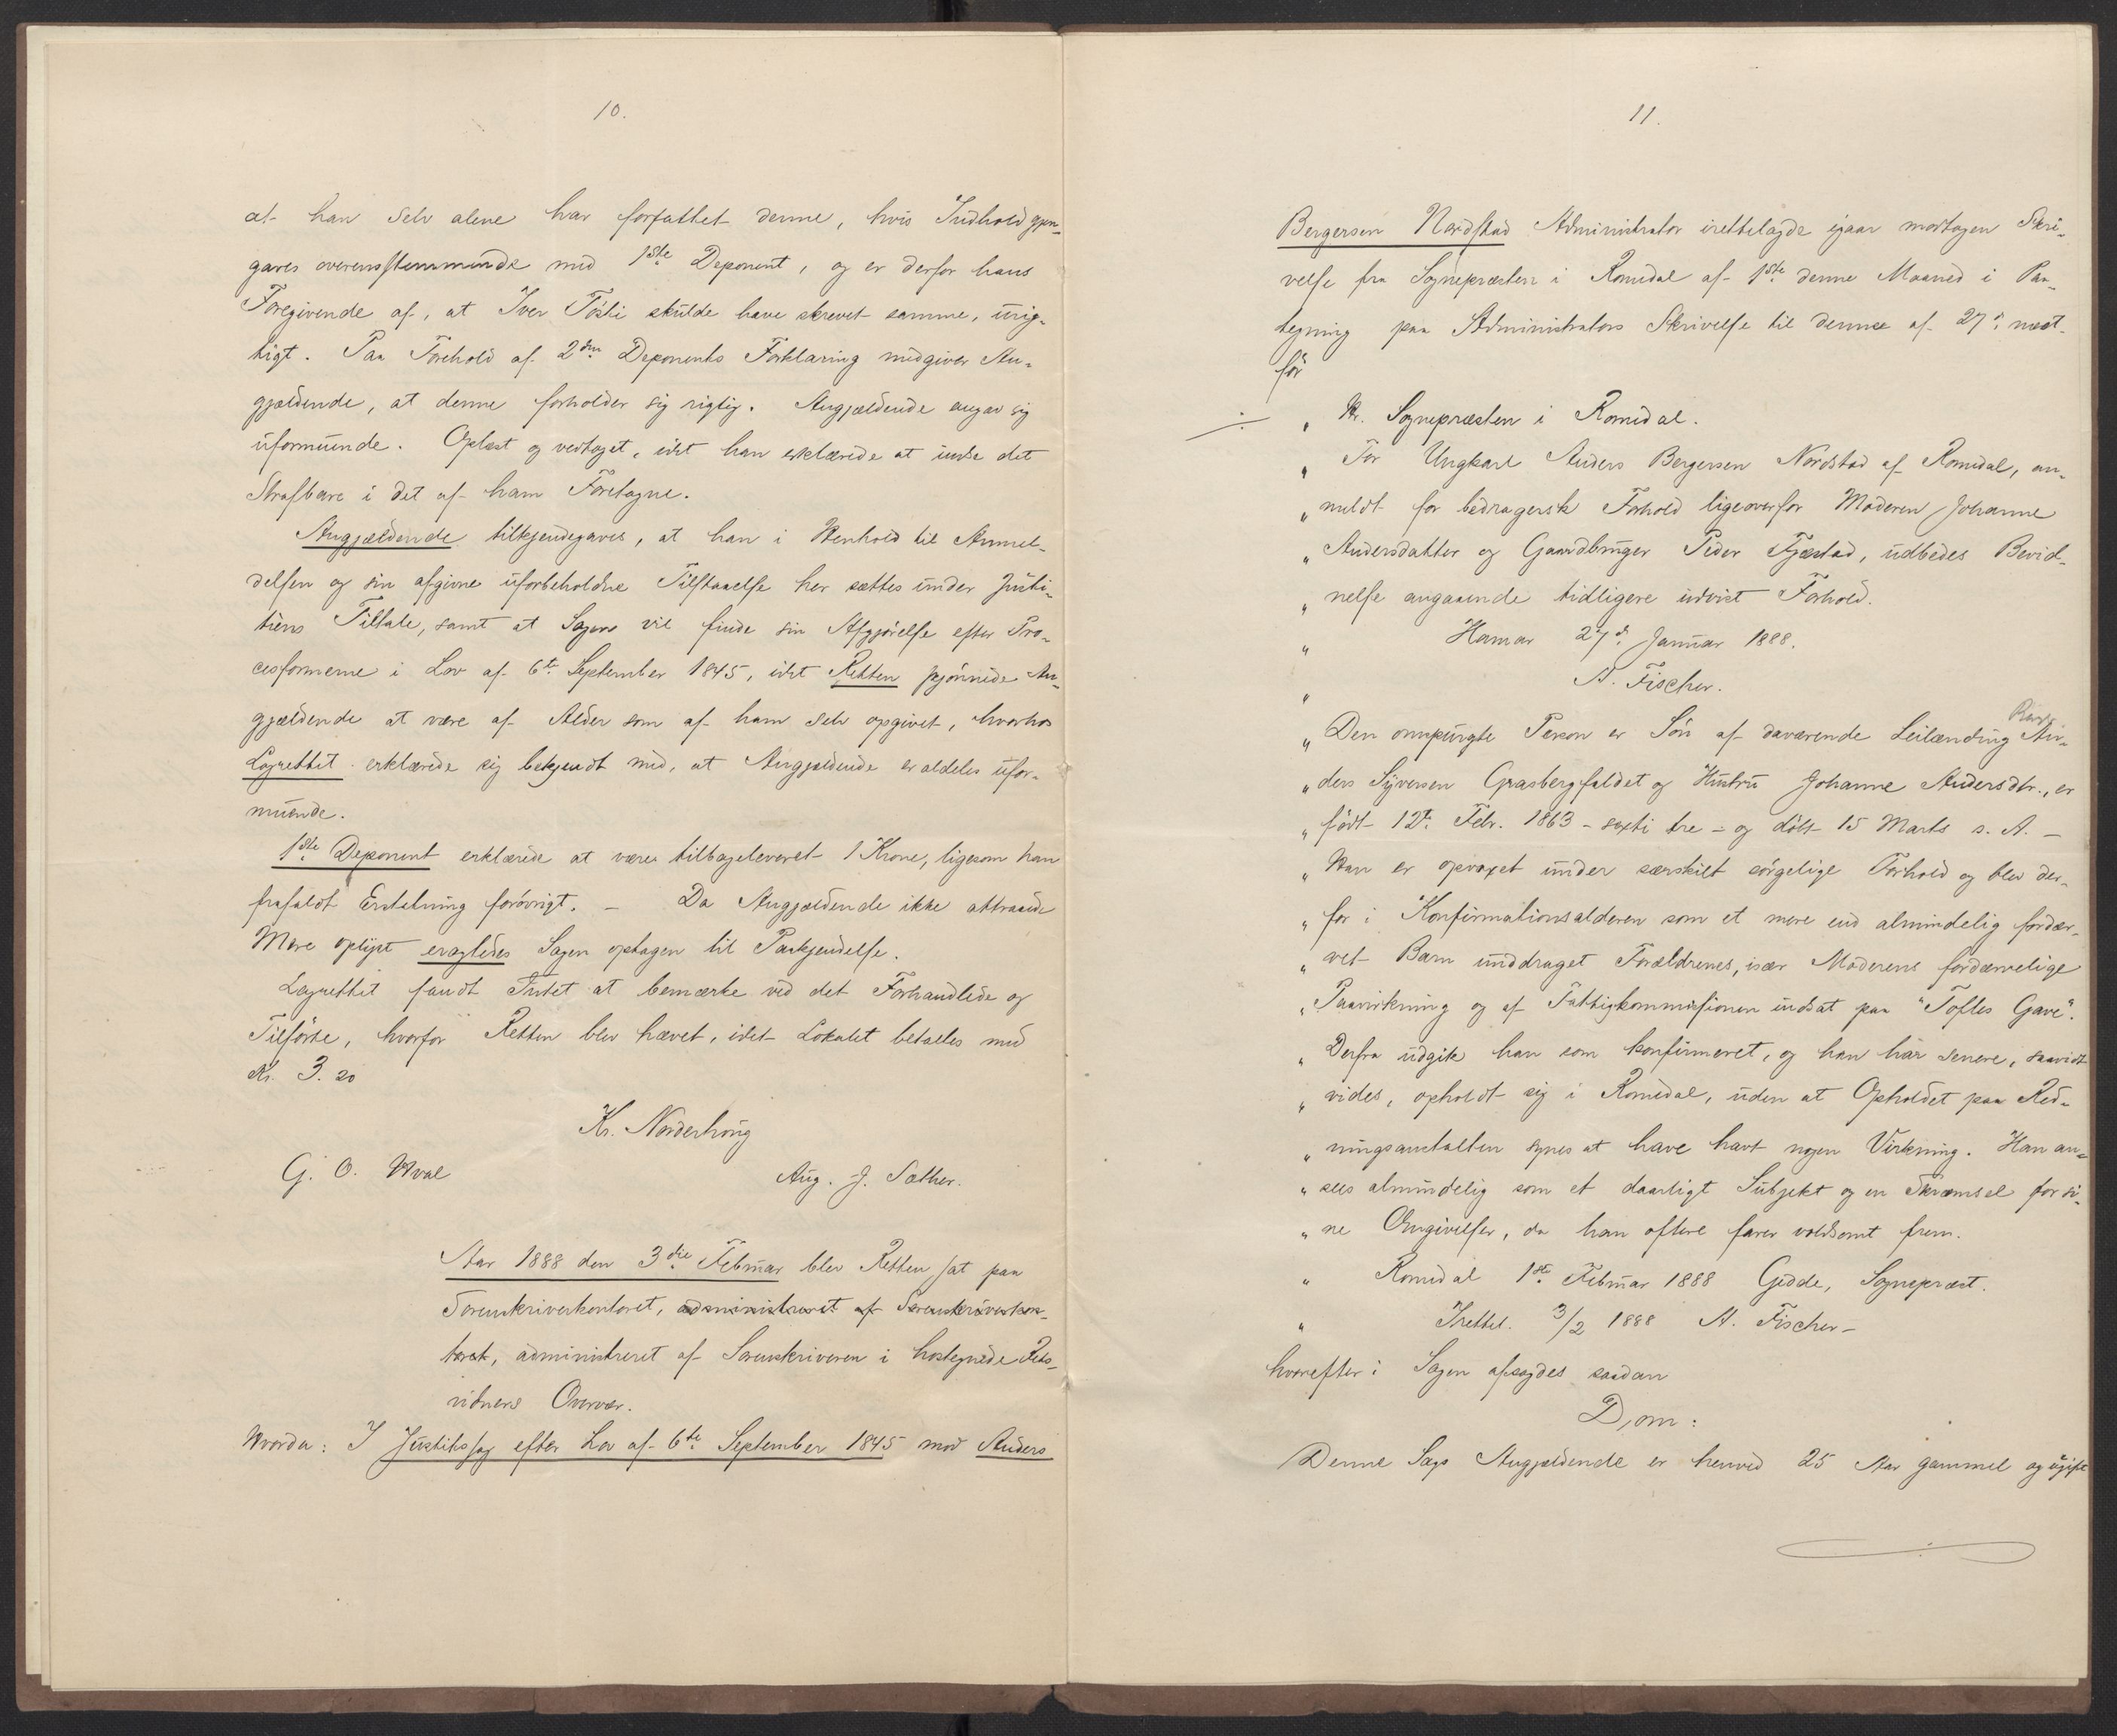 10.
at han selv alene har forfattet denne, hvis Indhold gjen-
gaves overensstemmende med 1ste Deponent, og er derfor hans
Foregivende af, at Iver Tösti skulde have skrevet samme, urig-
tigt. Paa Forehold af 2den Deponents Forklaring medgiver An-
gjældende, at denne forholder sig rigtig. Angjældende angav sig
uformuende. Oplæst og vedtaget, idet han erklærede at indse det
Strafbare i det af ham Foretagne.
Angjældende tilkjendegaves, at han i Henhold til Anmel-
delsen og sin afgivne uforbeholdne Tilstaaelse her sættes under Justi-
tiens Tiltale, samt at Sagen vil finde sin Afgjörelse efter Pro-
cesformerne i Lov af 6te September 1845, idet Retten skjönnede An-
gjældende at være af Alder som af ham selv opgivet, hvorhos
Lagrettet erklærede sig bekjendt med, at Angjældende er aldeles ufor-
muende.
1ste Deponent erklærede at være tilbageleveret 1 Krone, ligesom han
frafaldt Erstatning forövrigt. – Da Angjældende ikke attraaede
Mere oplyst eragtedes Sagen optagen til Paakjendelse.
Lagrettet fandt Intet at bemærke ved det Forhandlede og
Tilförte, hvorfor Retten blev hævet, idet Lokalet betaltes med
Kr. 3.20
Kr. Norderhoug
G. O. Hval Aug. J. Sæther.
Aar 1888 den 3die Februar blev Retten sat paa
Sorenskriverkontoret, administreret af Sorenskriverkon-
toret, administreret af Sorenskriveren i hostegnede Rets-
vidners Overvær.
Hvorda: I Justitssag efter Lov af 6te September 1845 mod Anders
11.
Bergersen Nordstad Administrator irettelagde igaar modtagen Skri-
velse fra Sognepræsten i Romedal af 1ste denne Maaned i Paa-
tegning paa Administrators Skrivelse til denne af 27de næst-
för
„ Hr. Sognepræsten i Romedal.
„ For Ungkarl Anders Bergersen Nordstad af Romedal, an-
„ meldt for bedragersk Forhold ligeoverfor Moderen Johanne
„ Andersdatter og Gaardbruger Peder Fjæstad, udbedes Bevid-
„ nelse angaaende tidligere udvist Forhold.
„ Hamar 27de Januar 1888.
„ A. Fischer.
„ Den omspurgte Person er Sön af daværende Leilænding An-
„ ders Syversen Grasbergfaldet og Hustru Johanne Andersdtr., er
„ födt 12te Febr. 1863 – sexti tre – og döbt 15 Marts s. A. –
„ Han er opvoxet under særskilt sörgelige Forhold og blev der-
„ for i Konfirmationsalderen som et mere end almindelig fordær-
„ vet Barn unddraget Forældrenes, især Moderens fordærvelige
„ Paavirkning og af Fattigkommissionen indsat paa "Toftes Gave".
„ Derfra udgik han som konfirmeret, og han har senere, saavidt
„ vides, opholdt sig i Romedal, uden at Opholdet paa Red-
„ ningsanstalten synes at have havt nogen Virkning. Han an-
„ sees almindelig som et daarligt Subjekt og en Skræmsel for si-
„ ne Omgivelser, da han oftere farer voldsomt frem.
„ Romedal 1ste Februar 1888 Gedde, Sognepræst.
„ Irettel. 3/2 1888 A. Fischer –
hvorefter i Sagen afsagdes saadan
Dom:
Denne Sags Angjældende er henved 25 Aar gammel og ugift